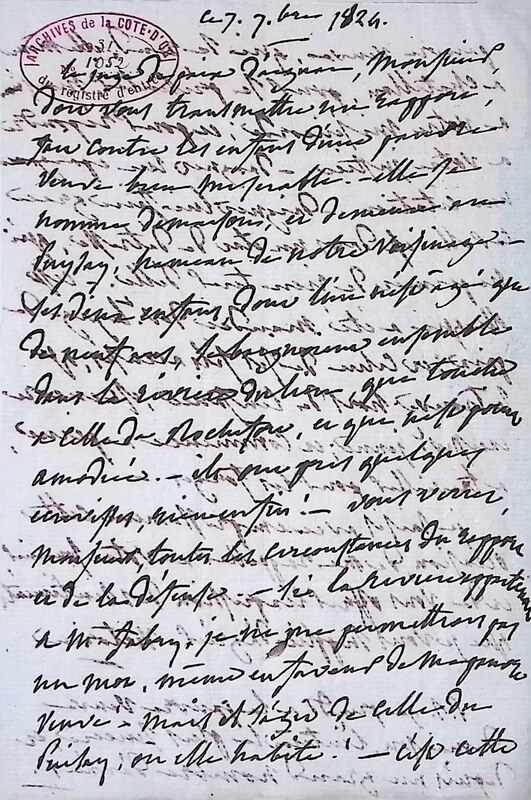 ce 7. 7.bre 1824.
ARCHIVES de la COTE-D'OR
31
1052
du registre d'entrée
le juge de paix d'aignai, Monsieur,
doit vous transmettre un rapport,
fait contre les enfans d'une pauvre
veuve bien misérable. - elle se
nomme , et demeure au
Puisay, hameau de notre voisinage. -
ses deux enfans, dont l'un n'est âgé que
de neuf ans, se baignoient ensemble
dans la rivière du lieu, qui touche
à celle de Rochefort, et qui n'est point
amodiée. - ils ont pris quelques
écrevisses, enfin! - vous verrez,
Monsieur, toutes les circonstances du rapport
et de la défense. - si la rivière appartenoit
à Mr fabry, je ne me permettrois pas
un mot, même en faveur de ma pauvre
veuve - mais il s'agit de celle du
Puisay, où elle habite! - c'est cette